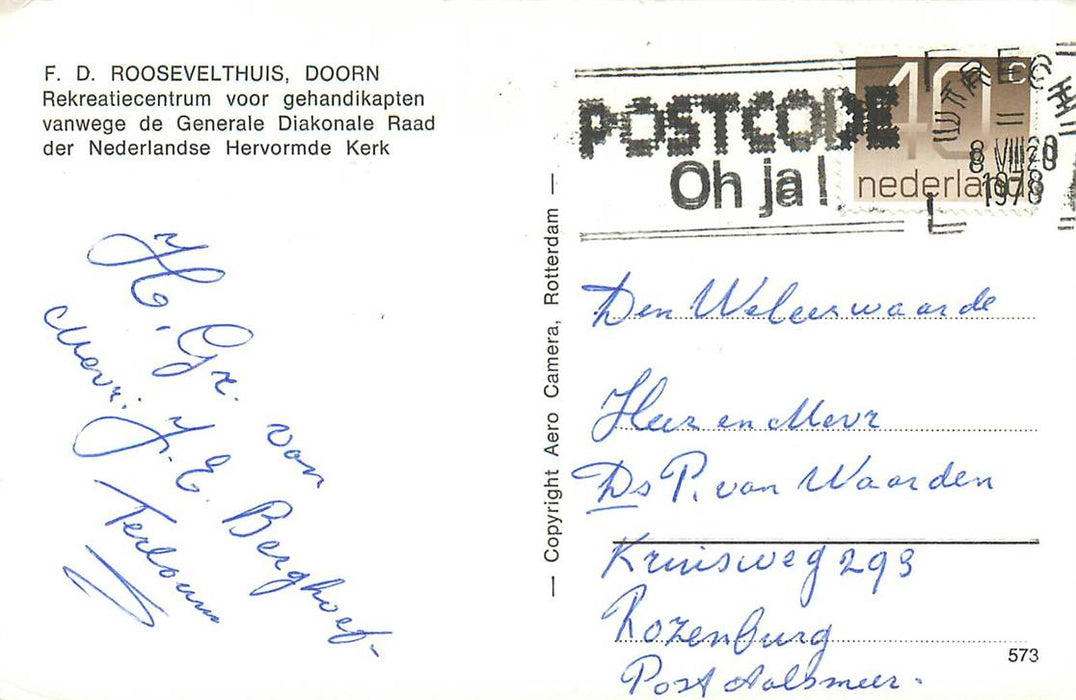 F. D. ROOSEVELTHUIS, DOORN
Rekreatiecentrum voor gehandikapten
vanwege de Generale Diakonale Raad
der Nederlandse Hervormde Kerk
H. Gr. van
Mevr. J. E. Berghoef-
Terlouw
— Copyright Aero Camera, Rotterdam —
POSTCODE
Oh ja!
UTRECHT
8 VIII 20
1978
40 c
nederland
Den Weleerwaarde
Heer en Mevr
Ds P. van Waarden
Kruisweg 293
Rozenburg
Post Aalsmeer.
573